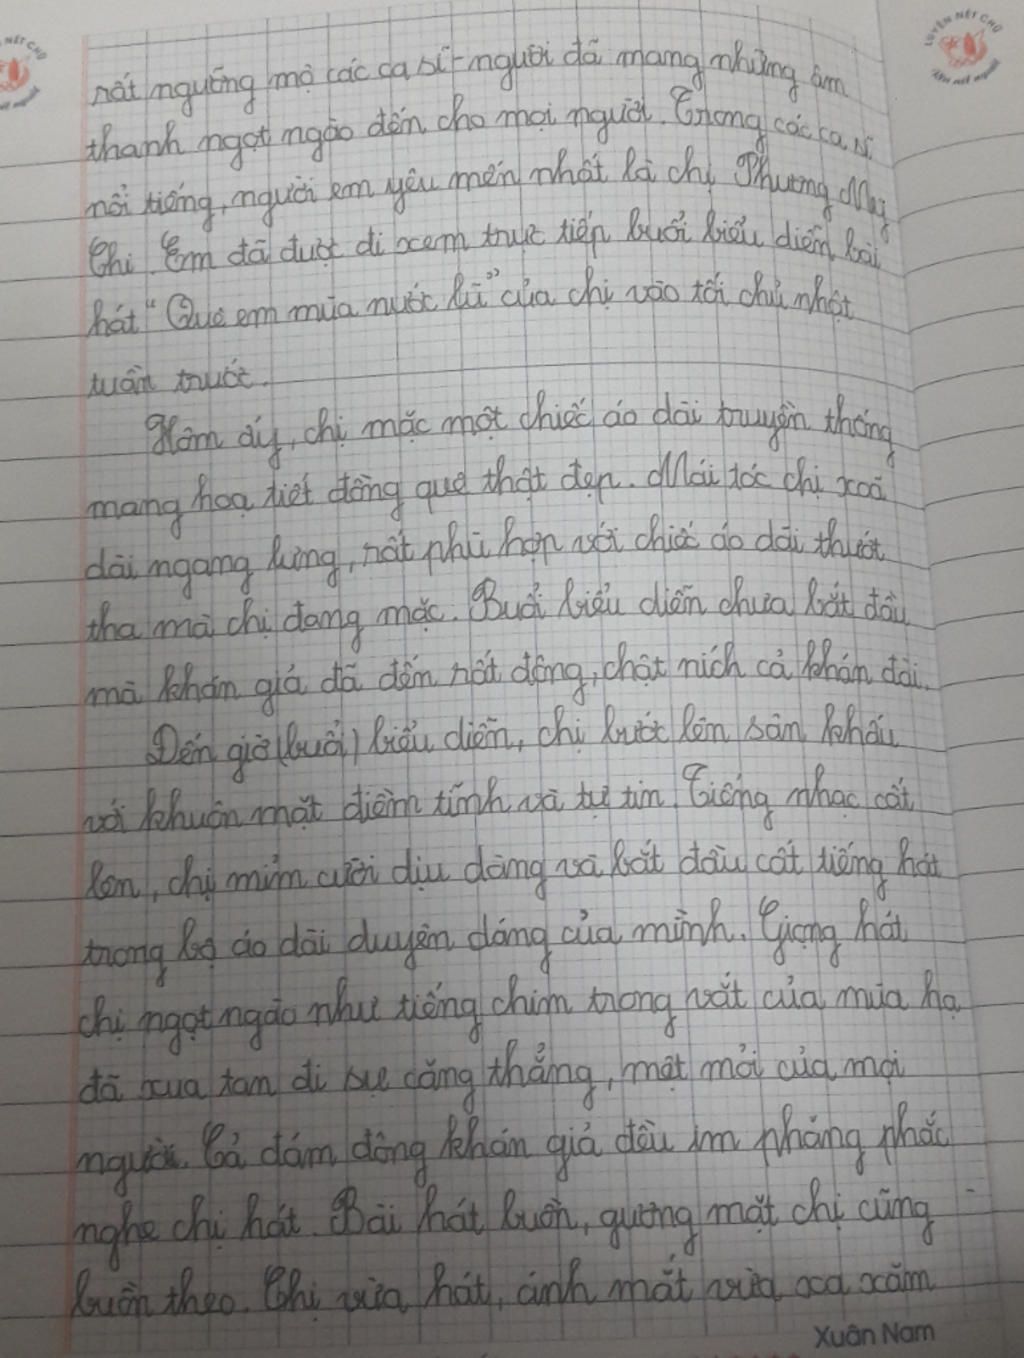 NÉT CHỮ
LUYỆN NÉT CHỮ
rất ngưỡng mộ các ca sĩ - người đã mang những âm
thanh ngọt ngào đến cho mọi người. Trong các ca sĩ
nổi tiếng, người em yêu mến nhất là chị Phương Mỹ
Chi. Em đã được đi xem trực tiếp buổi biểu diễn bài
hát " Quê em mùa nước lũ" của chị vào tối chủ nhật
tuần trước.
Hôm ấy, chị mặc một chiếc áo dài truyền thống
mang hoạ tiết đồng quê thật đẹp. Mái tóc chị xoã
dài ngang lưng, rất phù hợp với chiếc áo dài thướt
tha mà chị đang mặc. Buổi biểu diễn chưa bắt đầu
mà khán giả đã đến rất đông, chật ních cả khán đài.
Đến giờ (buổi) biểu diễn, chị bước lên sân khấu
với khuôn mặt điềm tĩnh và tự tin. Tiếng nhạc cất
lên, chị mỉm cười dịu dàng và bắt đầu cất tiếng hát
trong bộ áo dài duyên dáng của mình. Giọng hát
chị ngọt ngào như tiếng chim trong vắt của mùa hạ
đã xua tan đi sự căng thẳng, mệt mỏi của mọi
người. Cả đám đông khán giả đều im phăng phắc
nghe chị hát. Bài hát buồn, gương mặt chị cũng
buồn theo. Chị vừa hát, ánh mắt vừa xa xăm
Xuân Nam